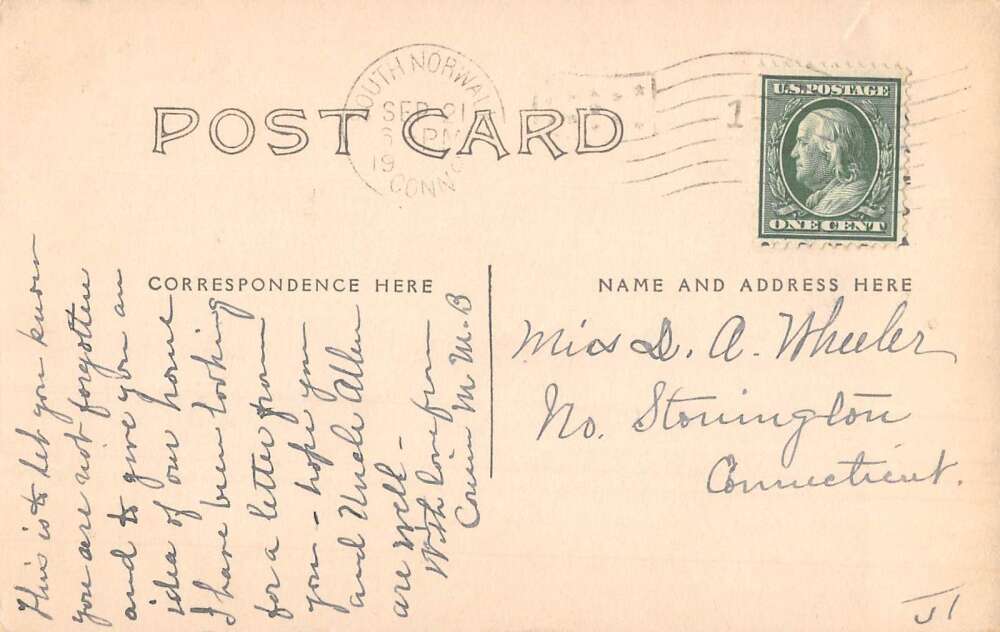 POST CARD
SOUTH NORWALK
SEP 21
PM
19
CONN.
1
U.S. POSTAGE
ONE CENT
CORRESPONDENCE HERE
NAME AND ADDRESS HERE
This is to let you know
you are not forgotten
and to give you an
idea of our home
I have been looking
for a letter from
you - hope you
and Uncle Allen
are well -
With love from
Cousin M. M. B
Miss D. A. Wheeler
No. Stonington
Connecticut.
J1